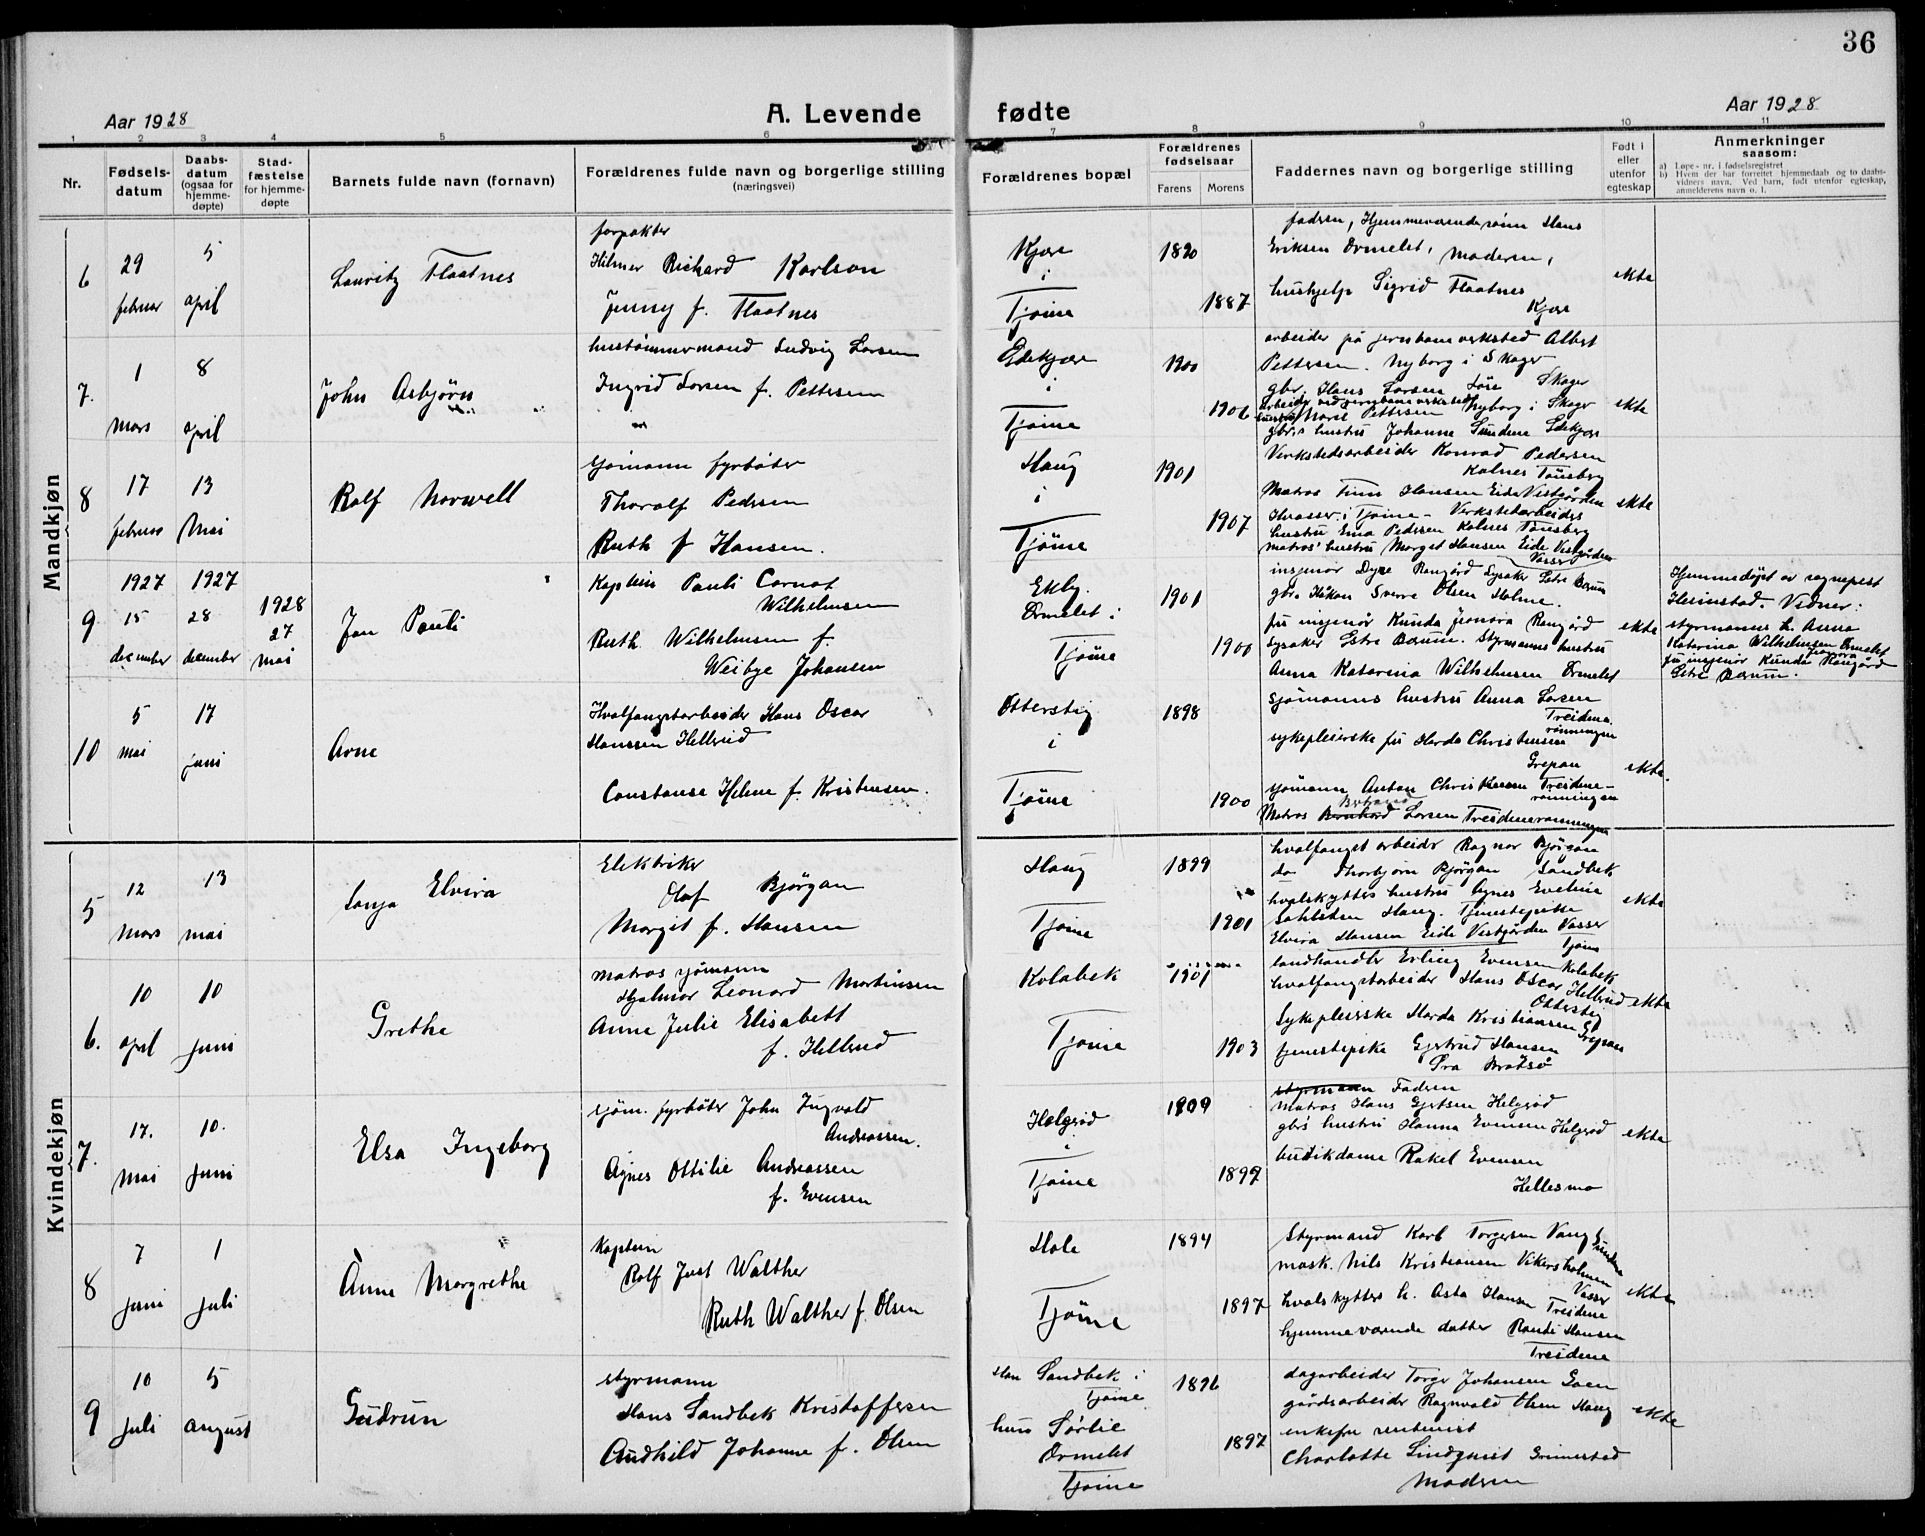 36
Aar 1928
A. Levende
fødte
Aar 1928
1 2 3 4 5 6 7 8 9 10 11
Nr.
Fødsels-
datum
Daabs-
datum
(ogsaa for
hjemme-
døpte)
Stad-
fæstelse
for hjemme-
døpte
Barnets fulde navn (fornavn)
Forældrenes fulde navn og borgerlige stilling
(næringsvei)
Forældrenes bopæl
Forældrenes
fødselsaar
Farens
Morens
Faddernes navn og borgerlige stilling
Født i
eller
utenfor
egteskap
Anmerkninger
saasom:
a) Løpe-nr. i fødselsregistret
b) Hvem der har forrettet hjemmedaab og to daabs-
vidners navn. Ved barn, født utenfor egteskap,
anmelderens navn o. l.
Mandkjøn
6
29
februar
5
april
Lauritz Flaatnes
forpakter
Hilmer Richard Karlson
Jenny f. Flaatnes
Kjøre
i
Tjøme
1890
1887
fadren, Hjemmeværende sønn Hans
Eriksen Ormelet, Moderen,
hushjelp Sigrid Flaatnes
Kjøre
ekte
7.
1
mars
8
april
John Asbjørn
hustømmermand Ludvig Larsen
Ingrid Larsen f. Pettersen
Edekjær
i
Tjøme
1900
1906
arbeider på jernbaneverksted Albert
Pettersen. Nyborg i Skoger
gbr. Hans Larsen Skoger
arbeider ved jernbaneverksted
hustru Pettersen Nyborg i Skoger
gbr.s hustru Johanne Sundene Edekjær
ekte
8
17
februar
13
Mai
Rolf Norwell
sjømann fyrbøter
Thoralf Pedersen
Ruth f Hansen.
Haug
i
Tjøme
1901
1907
Verkstedsarbeider Konrad Pedersen
Kalnes Tønsberg
Matros Finn Hansen Eide Vestgården
i Tjøme - Verkstedarbeiders
hustru Ema Pedersen Kalnes Tønsberg
matros' hustru Margit Hansen Eide Vestgården
Vasser
ekte
9
1927
15
december
1927
28
december
1928
27
mai
Jan Pauli
Kaptein Pauli Carnot
Wilhelmsen
Ruth Wilhelmsen f.
Weibye Johansen
Ekly
Ormelet i
Tjøme
1901
1900
ingeniør Dyre Rangård Lysaker Østre Bærum
gbr. Håkon Sverre Olsen Holme.
fru ingeniør Kunda Jeanora Rangård
Lysaker Østre Bærum. Styrmanns hustru
Anna Katarina Wilhelmsen Ormelet
ekte
Hjemmedøpt av sogneprest
Heimstad. Vidner:
styrmanns h. Anna
Katarina Wilhelmsen Ormelet
fru ingeniør Kunda Jeanora Rangård
Østre Bærum.
10
5
mai
17
juni
Arne
Hvalfangstarbeider Hans Oscar
Hanssen Hellerud
Constanse Helene f. Kristensen.
Otterstig
i
Tjøme
1898
1900
sjømanns hustru Anna Larsen
Treidene
rønningen
sykepleierske frk Harda Christensen
Grepan
sjømann Anton Christensen Treidene-
rønningen
Matros Bernhard Larsen Treidenerønningen
ekte.
Kvindekjøn
5
12
Mars
13
mai
Sonja Elvira
Elektriker
Olaf Bjørgan
Margit f. Hansen
Haug
Tjøme
1899
1901
hvalfangstarbeider Ragnar Bjørgan
do Thorbjørn Bjørgan Sandbek
hvalskytters hustru Agnes Eveline
Dahlsten Haug. Tjenestepike
Elvira Hansen Eide Vestgården Vasser
Tjøme
ekte
6.
10
april
10
juni
Grethe
Matros sjømann
Hjalmar Leonard Martinsen
Anne Julie Elisabeth
f. Hellerud
Kolabek
Tjøme
1901
1903
landhandler Erling Evensen Kolabek
hvalfangstarbeider Hans Oscar Hellerud
Otterstig
Sykepleierske Harda Kristiansen Grepan
tjenestepike Gjertrud Hansen
Bratsø
ekte
7.
17.
mai
10.
juni
Elsa Ingeborg
sjøm. fyrbøter John Ingvald
Andreassen.
Agnes Ottilie Andreassen
f. Evensen
Helgerød
i
Tjøme
1909
1897
styrmann Fadren
Matros Hans Gjertsen Helgerød
gbrs hustru Hanna Evensen Helgerød
butikdame Rakel Evensen
Hellesmo
ekte
8
7
juni
1
juli
Anne Margrethe
Kaptein
Rolf Just Walther
Ruth Walther f. Olsen
Hole
Tjøme
1894
1897
Styrmand Karl Torgersen Vang Sundene
mask. Nils Kristiansen Vikersholmen
Vasser
hvalskytters h. Asta Hansen Treidene
hjemmeværende datter Randi Hansen
Treidene
ekte
9
10
juli
5
august
Gudrun
styrmann
Hans Sandbek Kristoffersen
Audhild Johanne f. Olsen
Han Sandbek i
Tjøme
hun Sørlie
Ormelet
Tjøme
1896
1897
dagarbeider Torger Johansen Goen
gårdsarbeider Ragnvald Olsen Haug
enkefru rentenist
Charlotte Lindqvist Grimestad
Modren
ekte